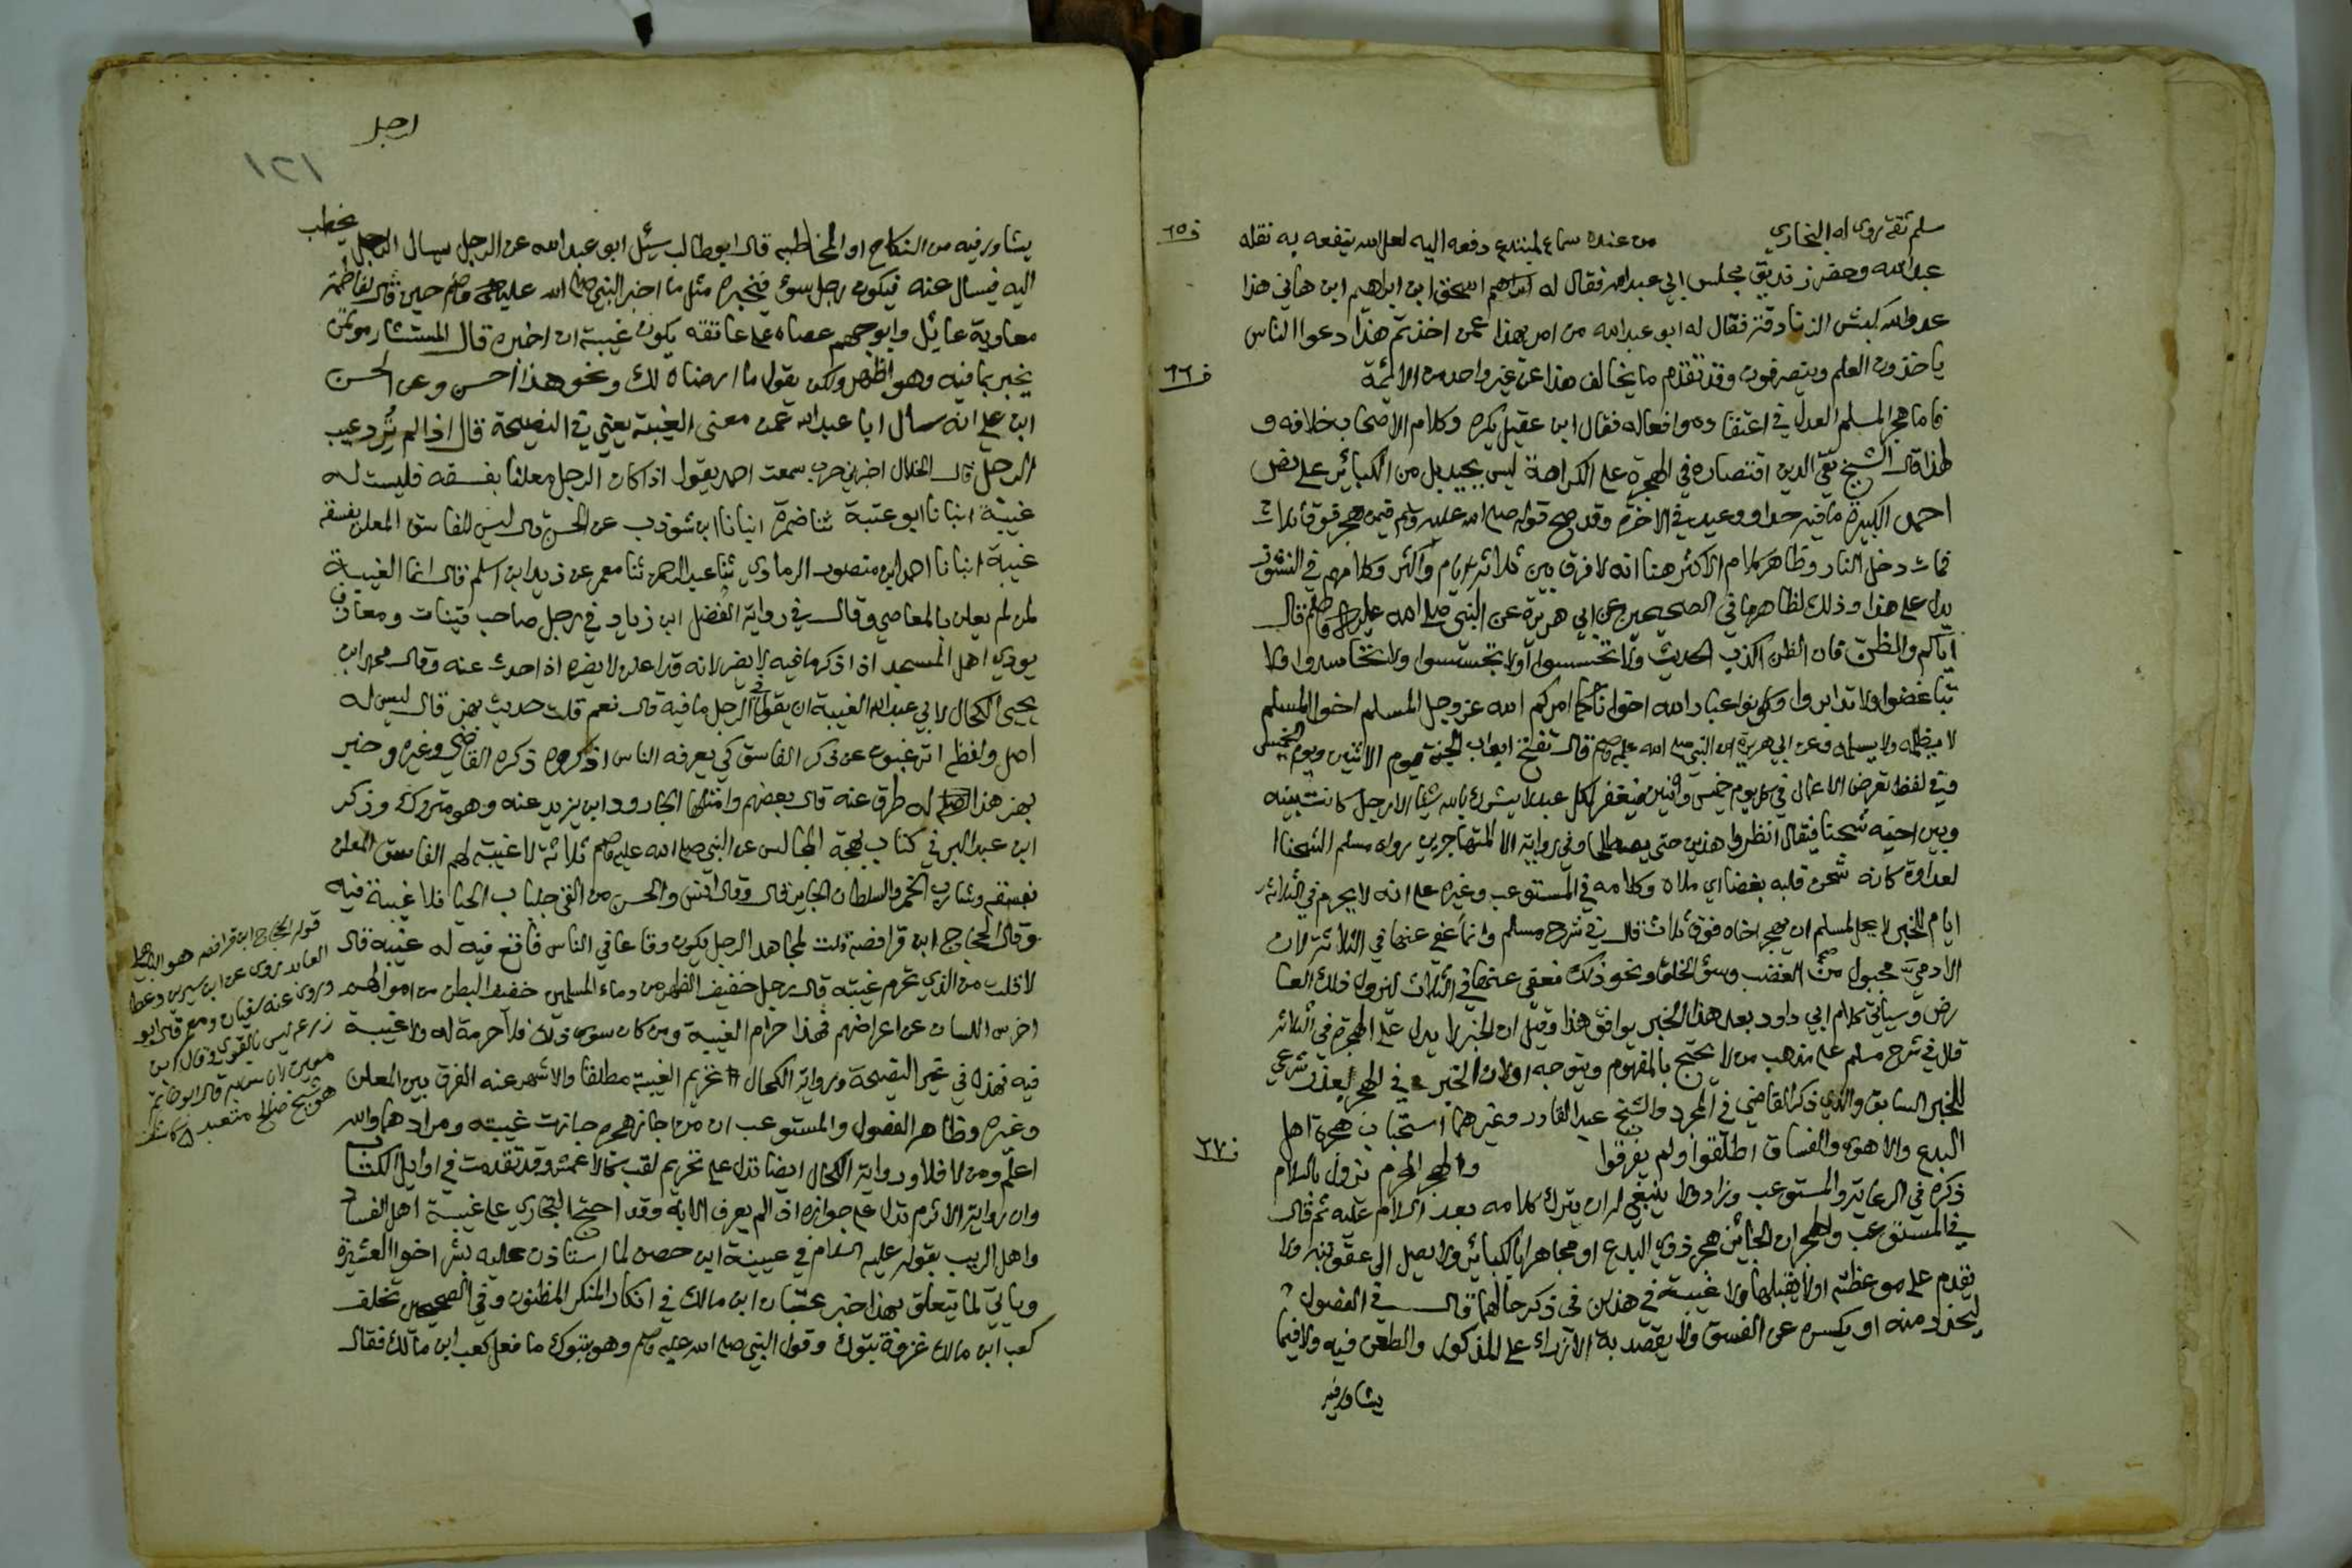 سلم ثقة روى له البخاري من عنده سماع لمبتدع دفعه اليه لعل الله ينفعه به نقله
ف ٦٥
عبد الله وحضر زنديق مجلس ابي عبد الله فقال له اسحق ابن ابراهيم ابن هاني هذا
عدو الله كبش الزنادقة فقال له ابو عبد الله من امر بهذا عمن اخذتم هذا دعوا الناس
ياخذون العلم وينصرفون وقد تقدم ما يخالف هذا عن غير واحد من الائمة
ف ٦٦
فاما هجر المسلم العدل في اعتقاده وافعاله فقال ابن عقيل يكره وكلام الاصحاب خلافه و
لهذا قال الشيخ تقي الدين اقتصاره في الهجرة على الكراهة ليس بجيد بل من الكبائر على نص
احمد الكبيرة ما فيه حد او وعيد في الاخرة وقد صح قوله صلى الله عليه وسلم فمن هجر فوق ثلاث
فمات دخل النار وظاهر كلام الاكثر هنا انه لا فرق بين ثلاثة ايام واكثر وكلامهم في النشوز
يدل على هذا وذلك لظاهر ما في الصحيحين عن ابي هريرة عن النبي صلى الله عليه وسلم قال
اياكم والظن فان الظن اكذب الحديث ولا تحسسوا ولا تجسسوا ولا تحاسدوا ولا
تباغضوا ولا تدابروا وكونوا عباد الله اخوانا كما امركم الله عز وجل المسلم اخو المسلم
لا يظلمه ولا يسلمه وعن ابي هريرة ان النبي صلى الله عليه وسلم قال تفتح ابواب الجنة يوم الاثنين ويوم الخميس
وفي لفظ تعرض الاعمال في كل يوم خميس واثنين فيغفر لكل عبد لا يشرك بالله شيئا الا رجل كانت بينه
وبين اخيه شحنا فيقال انظروا هذين حتى يصطلحا وفي رواية الا المتهاجرين رواه مسلم الشحنا
لعداوة كانه شحن قلبه بغضا اي ملاه وكلامه في المستوعب وغيره على انه لا يحرم في الثلاثة
ايام للخبر لا يحل لمسلم ان يهجر اخاه فوق ثلاث قال في شرح مسلم وانما عفي عنها في الثلاثة لان
الادمي مجبول على الغضب وسؤ الخلق ونحو ذلك فعفي عنها في الثلاث ليزول ذلك العا
رض وسياتي كلام ابي داود بعد هذا الخبر يوافق هذا وقيل ان الخبر لا يدل على الهجرة في الثلاثة
قال في شرح مسلم على مذهب من لا يحتج بالمفهوم ويتوجه اولان الخبر في الهجر بعذر شرعي
للخبر السابق والذي ذكر القاضي في المجرد والشيخ عبد القادر وغيرهما استحباب هجرة اهل
البدع والاهوى والفساق اطلقوا ولم يفرقوا والهجر المحرم يزول بالسلام
ف ٦٧
ذكره في الرعاية والمستوعب وزاد ولا ينبغي له ان يترك كلامه بعد السلام عليه ثم قال
في المستوعب والهجران الجائز هجر ذوي البدع او مجاهر بالكبائر ولا يصل الى عقوبته ولا
يقدم على موعظته اولا يقبلها ولا غيبة في هذين في ذكر حالهما قال في الفصول
ليحذر منه او يكسره عن الفسق ولا يقصد به الازراء على المذكور والطعن فيه ولا فيما
يشاور فيه
ارجل
١٢١
يشاور فيه من النكاح او المخاطبه قال ابو طالب سئل ابو عبد الله عن الرجل يسال الرجل يخطب
اليه فيسال عنه فيكون رجل سوء فيخبره مثل ما اخبر النبي صلى الله عليه وسلم حين قال لفاطمة
معاوية عائل وابو جهم عصاه على عاتقه يكون غيبة ان اخبره قال المستشار موتمن
يخبر بما فيه وهو اظهر ولكن يقول ما ارضاه لك ونحو هذا احسن وعن الحسن
ابن علي انه سال ابا عبد الله عن معنى الغيبة يعني في النصيحة قال اذا لم ترد عيب
الرجل قال الخلال اخبرني حرب سمعت احمد يقول اذا كان الرجل معلنا بفسقه فليست له
غيبة انبانا ابو عتبة ثنا ضمرة انبانا ابن شوذب عن الحسن قال ليس للفاسق المعلن بفسقه
غيبة انبانا احمد ابن منصور الرمادي ثنا عبد الرحمن ثنا معمر عن زيد ابن اسلم قال انما الغيبة
لمن لم يعلن بالمعاصي وقال في رواية الفضل ابن زياد في رجل صاحب قينات ومعازف
يوذي اهل المسجد اذا ذكر ما فيه لا يضر لانه قد اعلن لا يضره اذا حدث عنه وقال محمد ابن
يحيى الكحال لابي عبد الله الغيبة ان يقول في الرجل ما فيه قال نعم قلت حديث بهز قال ليس له
اصل ولفظه اترغبون عن ذكر الفاسق كي يعرفه الناس اذكروه ذكره القاضي وغيره وخبر
بهز هذا له طرق عنه قال بعضهم وامثلها الجارود ابن يزيد عنه وهو متروك وذكر
ابن عبد البر في كتاب بهجة المجالس عن النبي صلى الله عليه وسلم ثلاثة لا غيبة لهم الفاسق المعلن
بفسقه وشارب الخمر والسلطان الجاير قال وقال انس والحسن من القى جلباب الحيا فلا غيبة فيه
وقال الحجاج ابن فرافصة قلت لمجاهد الرجل يكون وقاعا في الناس فاقع فيه له غيبة قال
لا قلت من الذي تحرم غيبته قال رجل خفيف الظهر من دماء المسلمين خفيف البطن من اموالهم
اخرس اللسان عن اعراضهم فهذا حرام الغيبة ومن كان سوى ذلك فلا حرمة له ولا غيبة
فيه فهذا في غير النصيحة ورواية الكحال تحريم الغيبة مطلقا والاشهر عنه الفرق بين المعلن
وغيره وظاهر الفصول والمستوعب ان من جاز هجره جازت غيبته ومرادهما والله
اعلم ومن لا فلا ورواية الكحال ايضا تدل على تحريم لقب كالاعمش وقد تقدمت في اوايل الكتاب
وان رواية الاثرم تدل على جوازه اذا لم يعرف الا به وقد احتج البخاري على غيبة اهل الفساد
واهل الريب بقوله عليه السلام في عيينة ابن حصن لما استاذن عليه بئس اخو العشيرة
وياتي لما يتعلق بهذا خبر عتبان ابن مالك في انكار المنكر المظنون وفي الصحيحين تخلف
كعب ابن مالك غزوة تبوك وقول النبي صلى الله عليه وسلم وهو بتبوك ما فعل كعب ابن مالك فقال
قوله الحجاج ابن فرافصة هو الباهلي
العابد روى عن ابن سيرين وعطا
وروى عنه سفيان ومعمر قال ابو
زرعه ليس بالقوي وقال ابن
معين لا باس به قال ابو حاتم
هو شيخ صالح متعبد